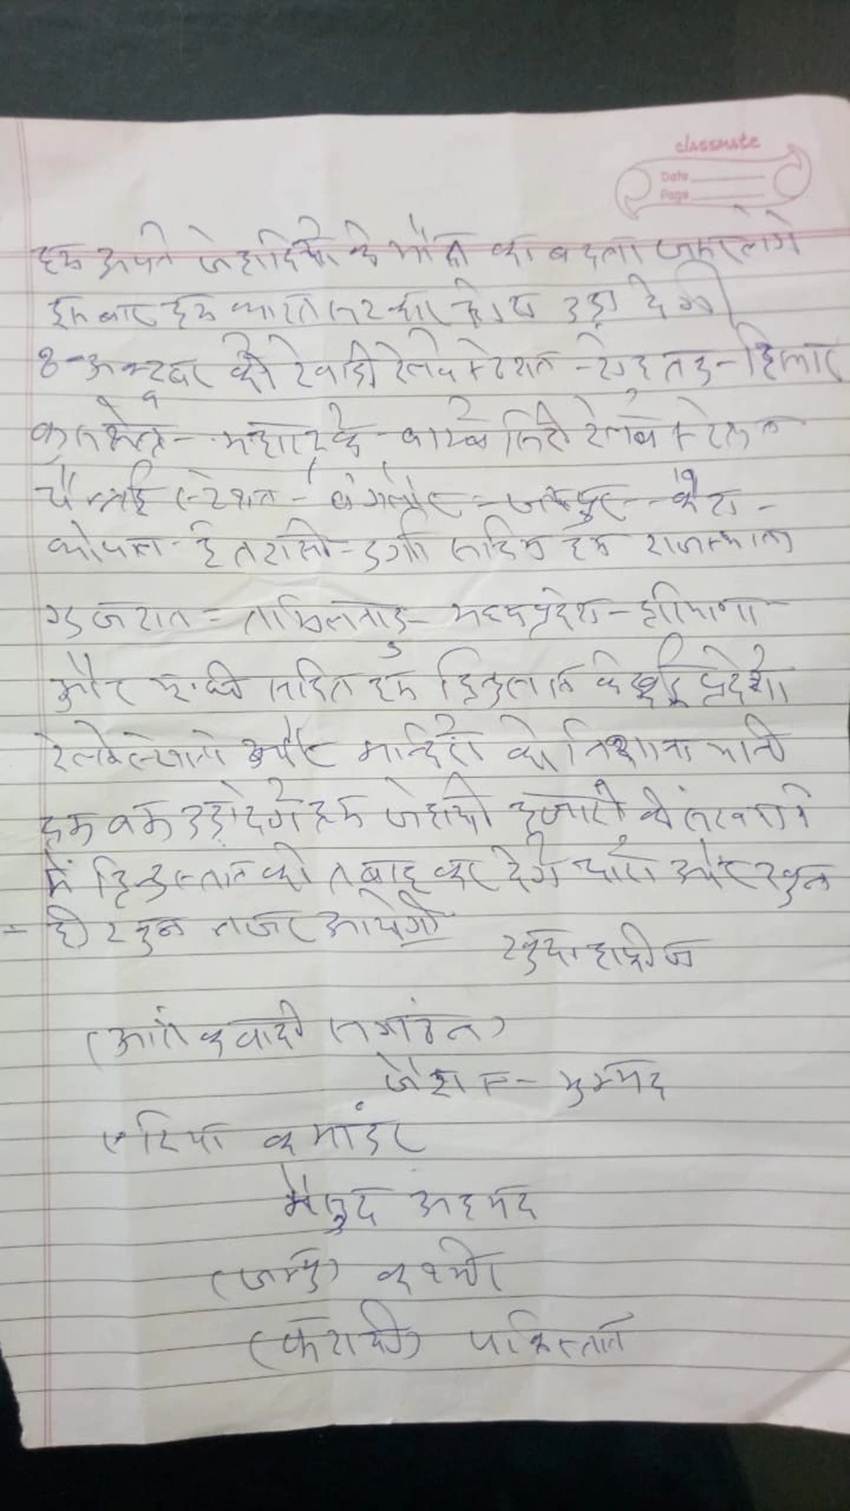 classmate
Date
Page
हम अपने जेहादियो के मौत का बदला जरुर लेगे
इस बार हम भारत सरकार को उड़ा देगे
8-अक्टूबर को रेवाडी रेलवे स्टेशन - रोहतक - हिसार
कुरुक्षेत्र - बाम्बे सिटी रेलवे स्टेशन
चैन्नई स्टेशन - बंगलौर - जयपुर - कोटा -
भोपाल - इटारसी - सहित हम राजस्थान
गुजरात - तामिलनाडु - मध्यप्रदेश - हरियाणा
और सहित हम हिन्दुस्तान के कई प्रदेश
रेलवे स्टेशनो और मन्दिरो को निशाना
हम बम उड़ा देगे हम जेहादी हजारो की संख्या
में हिन्दुस्तान को तबाह कर देगे चारो और खुन
ही खुन नजर आयेगा
खुदा हाफीज
(आतंकवादी संगठन)
जैश ए - मुहम्मद
एरिया कमांडर
अहमद
(जम्मु) कश्मीर
(कराची) पाकिस्तान